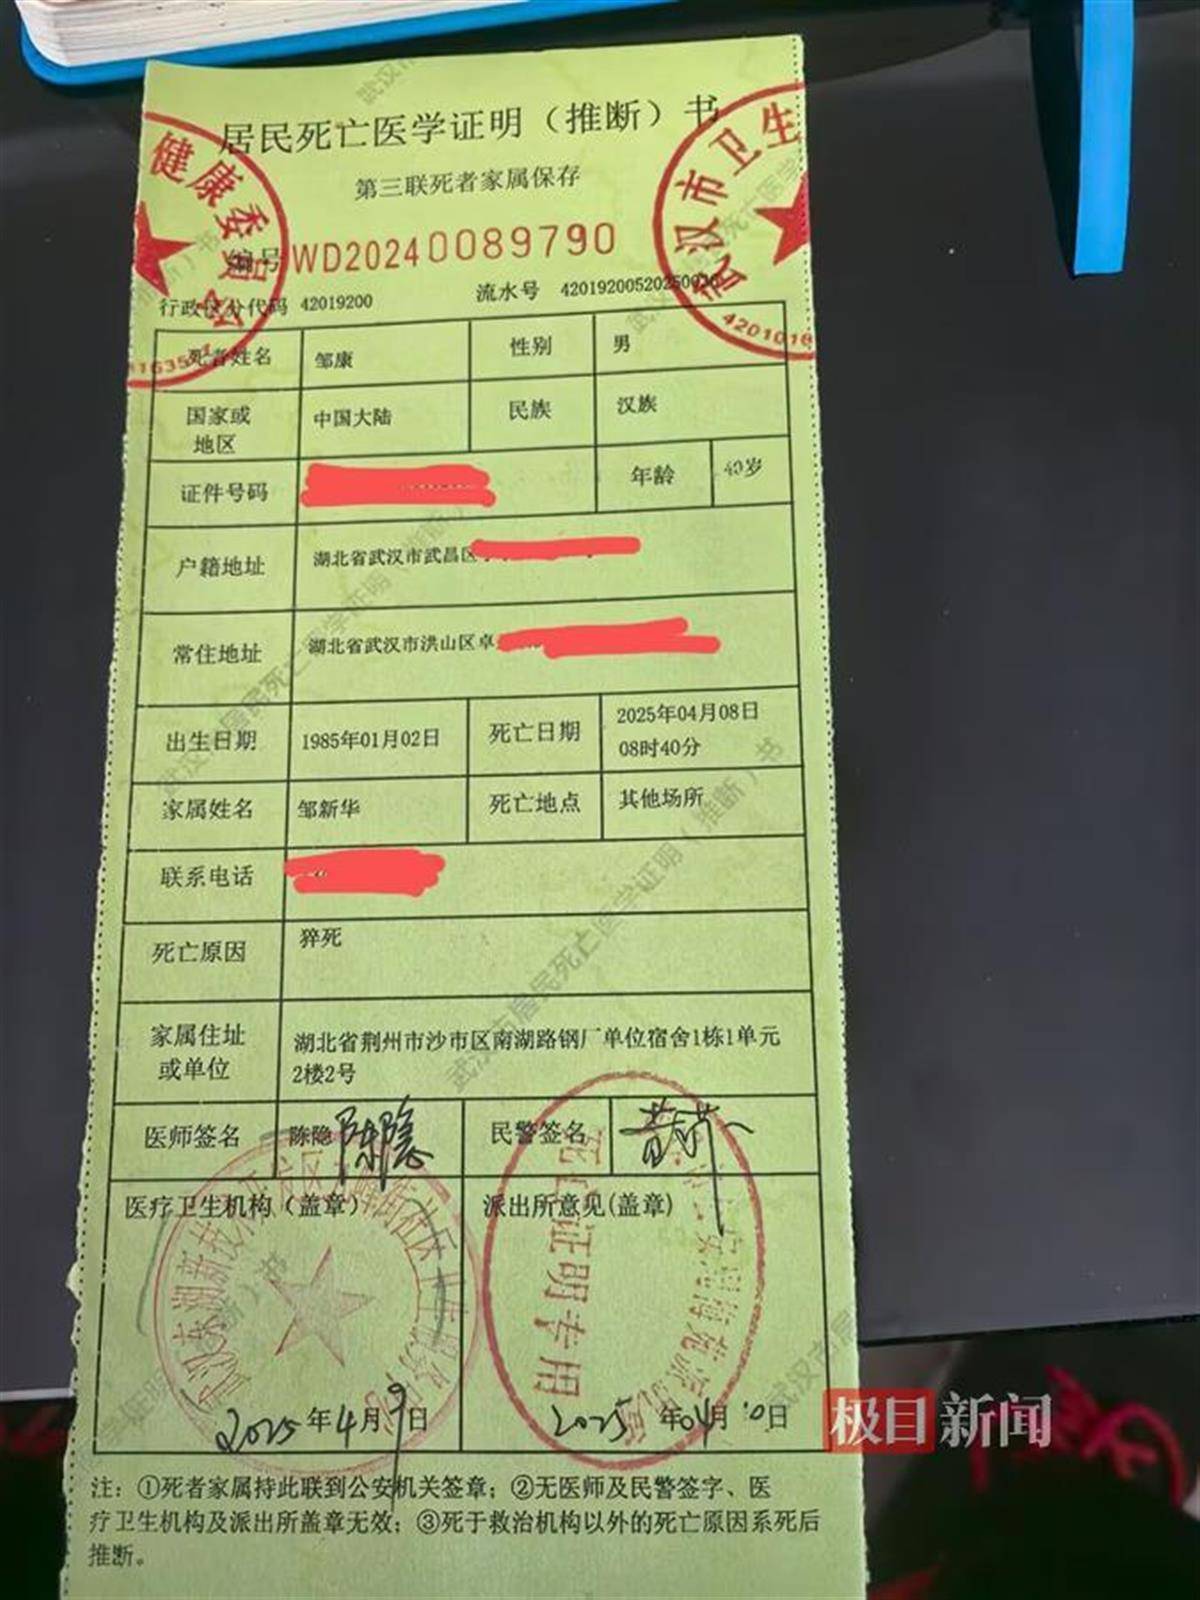 居民死亡医学证明（推断）书
第三联死者家属保存
编号 WD20240089790
行政区分代码 42019200 流水号 42019200520250036
死者姓名 邹康 性别 男
国家或地区 中国大陆 民族 汉族
证件号码 年龄 40岁
户籍地址 湖北省武汉市武昌区
常住地址 湖北省武汉市洪山区卓
出生日期 1985年01月02日 死亡日期 2025年04月08日
08时40分
家属姓名 邹新华 死亡地点 其他场所
联系电话
死亡原因 猝死
家属住址或单位 湖北省荆州市沙市区南湖路钢厂单位宿舍1栋1单元
2楼2号
医师签名 陈隐 陈隐 民警签名
医疗卫生机构（盖章） 派出所意见(盖章)
2025年4月9日 2025年04月10日
注：①死者家属持此联到公安机关签章；②无医师及民警签字、医
疗卫生机构及派出所盖章无效；③死于救治机构以外的死亡原因系死后
推断。
健康委员会
武汉市卫生
死亡证明专用
极目新闻